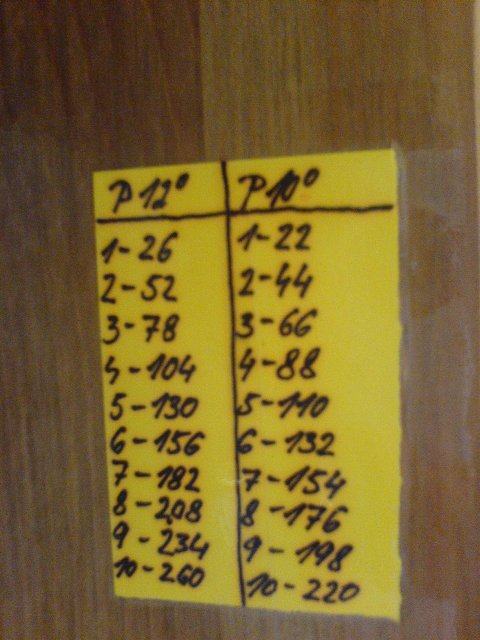 P 12° P 10°
1-26 1-22
2-52 2-44
3-78 3-66
4-104 4-88
5-130 5-110
6-156 6-132
7-182 7-154
8-208 8-176
9-234 9-198
10-260 10-220